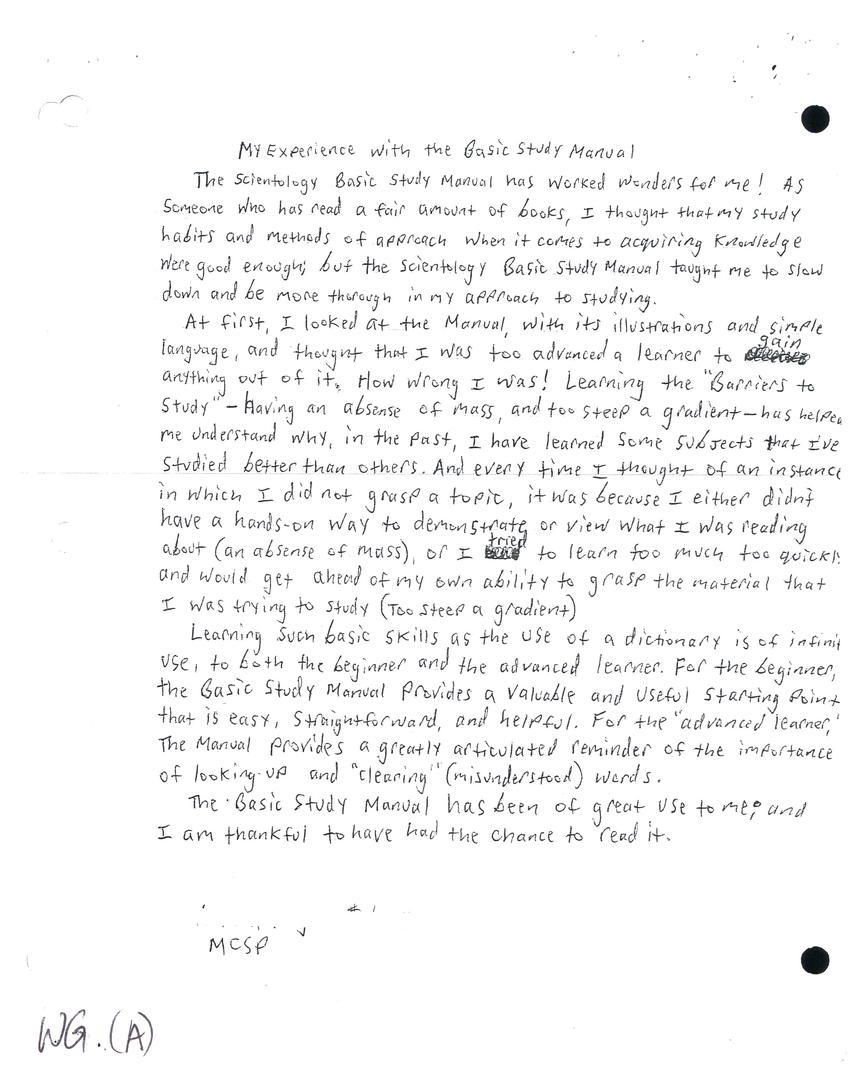 My Experience with the Basic Study Manual
The Scientology Basic Study Manual has worked wonders for me! As
someone who has read a fair amount of books, I thought that my study
habits and methods of approach when it comes to acquiring knowledge
were good enough; but the Scientology Basic Study Manual taught me to slow
down and be more thorough in my approach to studying.
At first, I looked at the Manual, with its illustrations and simple
language, and thought that I was too advanced a learner to gain
anything out of it. How wrong I was! Learning the "Barriers to
Study" - Having an absense of mass, and too steep a gradient - has helped
me understand why, in the past, I have learned some subjects that I've
studied better than others. And every time I thought of an instance
in which I did not grasp a topic, it was because I either didn't
have a hands-on way to demonstrate or view what I was reading
about (an absense of mass), or I tried to learn too much too quickl
and would get ahead of my own ability to grasp the material that
I was trying to study (Too steep a gradient)
Learning such basic skills as the use of a dictionary is of infinit
use, to both the beginner and the advanced learner. For the beginner,
the Basic Study Manual provides a valuable and useful starting point
that is easy, straightforward, and helpful. For the "advanced learner,"
The Manual provides a greatly articulated reminder of the importance
of looking-up and "clearing" (misunderstood) words.
The Basic Study Manual has been of great use to me; and
I am thankful to have had the chance to read it.
# 1
MCSP
WG. (A)